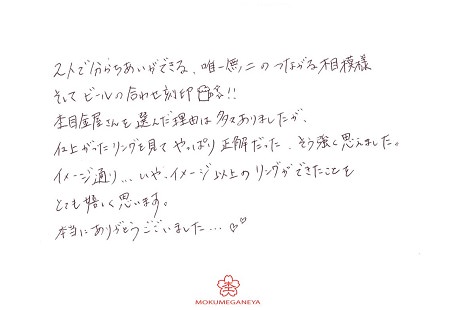 2人で分かちあいができる、唯一無二のつながる相模様
そしてビールの合わせ刻印🍻!!
杢目金屋さんを選んだ理由は多々ありましたが、
仕上がったリングを見てやっぱり正解だった、そう強く思えました。
イメージ通り...いや、イメージ以上のリングができたことを
とても嬉しく思います。
本当にありがとうございました...♡♡
杢
MOKUMEGANEYA